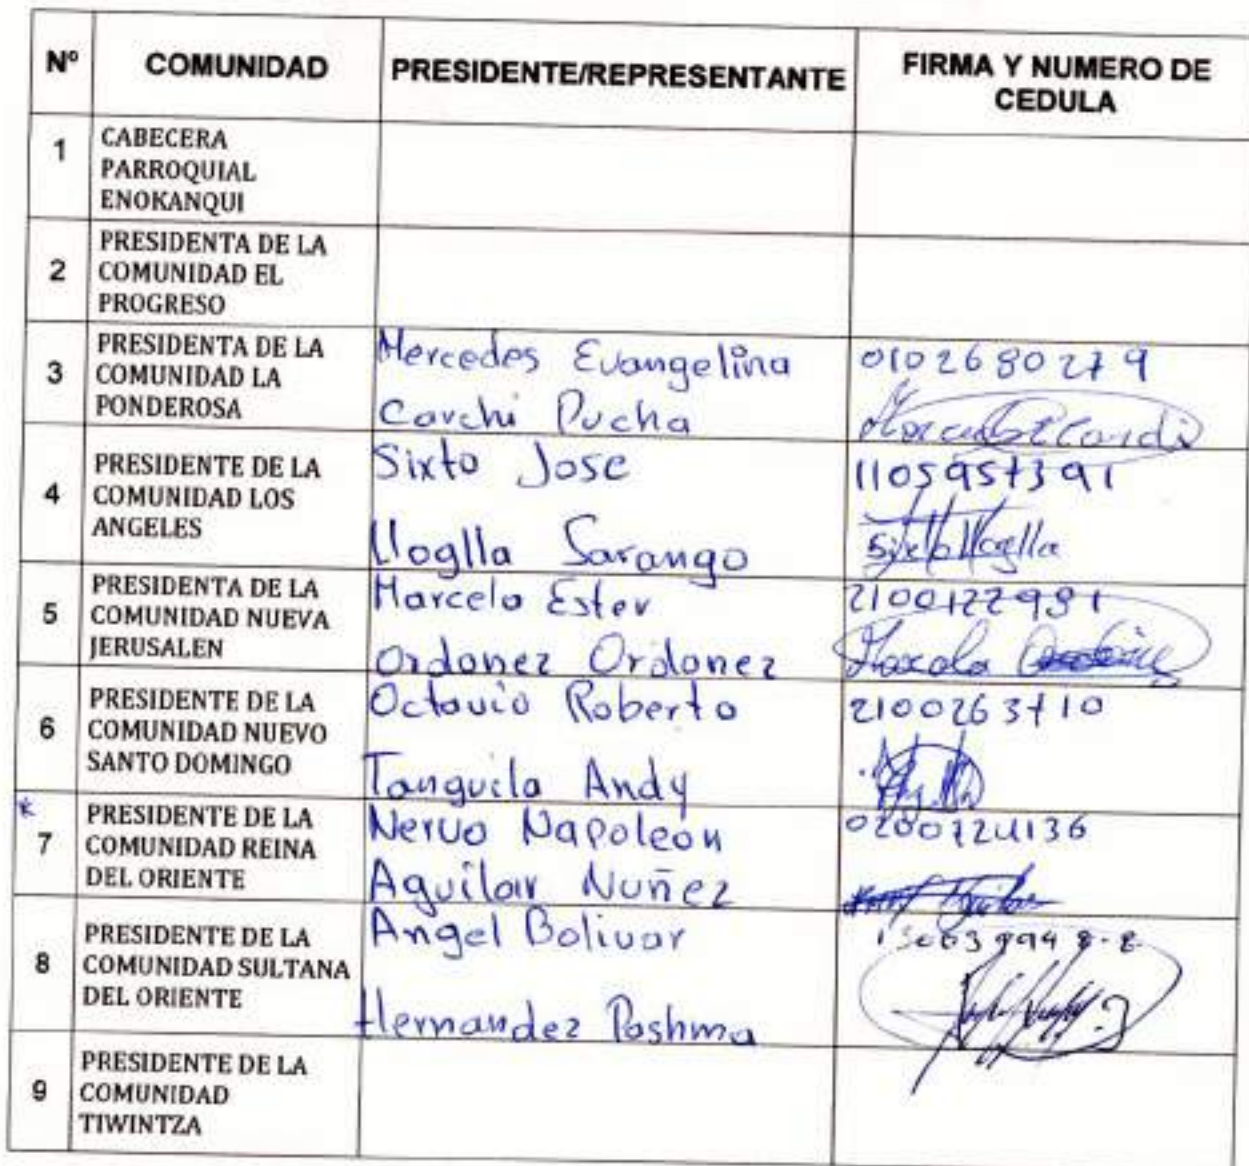 Nº COMUNIDAD PRESIDENTE/REPRESENTANTE FIRMA Y NUMERO DE
CEDULA
1 CABECERA
PARROQUIAL
ENOKANQUI
2 PRESIDENTA DE LA
COMUNIDAD EL
PROGRESO
3 PRESIDENTA DE LA
COMUNIDAD LA
PONDEROSA
Mercedes Evangelina
Carchi Pucha
0102680279
4 PRESIDENTE DE LA
COMUNIDAD LOS
ANGELES
Sixto Jose
Lloglla Sarango
1105957391
Sixto Lloglla
5 PRESIDENTA DE LA
COMUNIDAD NUEVA
JERUSALEN
Marcela Ester
Ordonez Ordonez
Marcela
6 PRESIDENTE DE LA
COMUNIDAD NUEVO
SANTO DOMINGO
Octavio Roberto
Tanguila Andy
2100263710
7 PRESIDENTE DE LA
COMUNIDAD REINA
DEL ORIENTE
Nervo Napoleon
Aguilar Nuñez
8 PRESIDENTE DE LA
COMUNIDAD SULTANA
DEL ORIENTE
Angel Bolivar
Hernandez Pashma
9 PRESIDENTE DE LA
COMUNIDAD
TIWINTZA